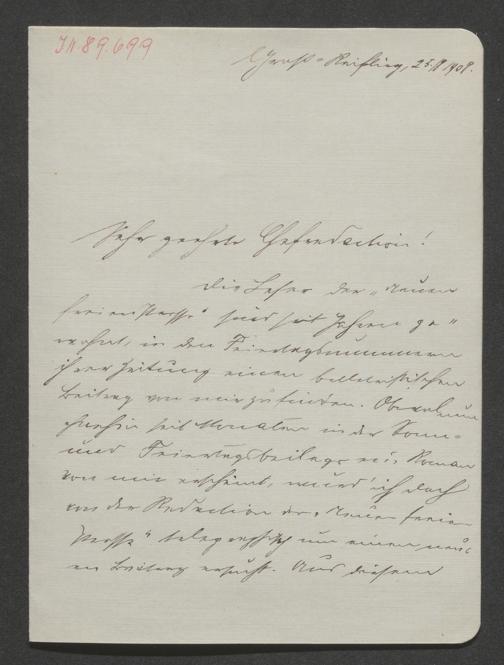 IN 89.699
Groß-Reifling, 25.11.1908.
Sehr geehrte Chefredaction!
Die Leser der „Neuen
freien Presse“ sind seit Jahren ge„
wohnt, in den Feiertagsnummern
ihrer Zeitung einen belletristischen
Beitrag von mir zu finden. Obwol nun
ohnehin seit Monaten in der Sonn-
und Feiertagsbeilage ein Roman
von mir erscheint, wurd' ich doch
von der Redaction der „Neuen freien
Presse“ telegraphisch um einen neu¬
en Beitrag ersucht. Aus diesem